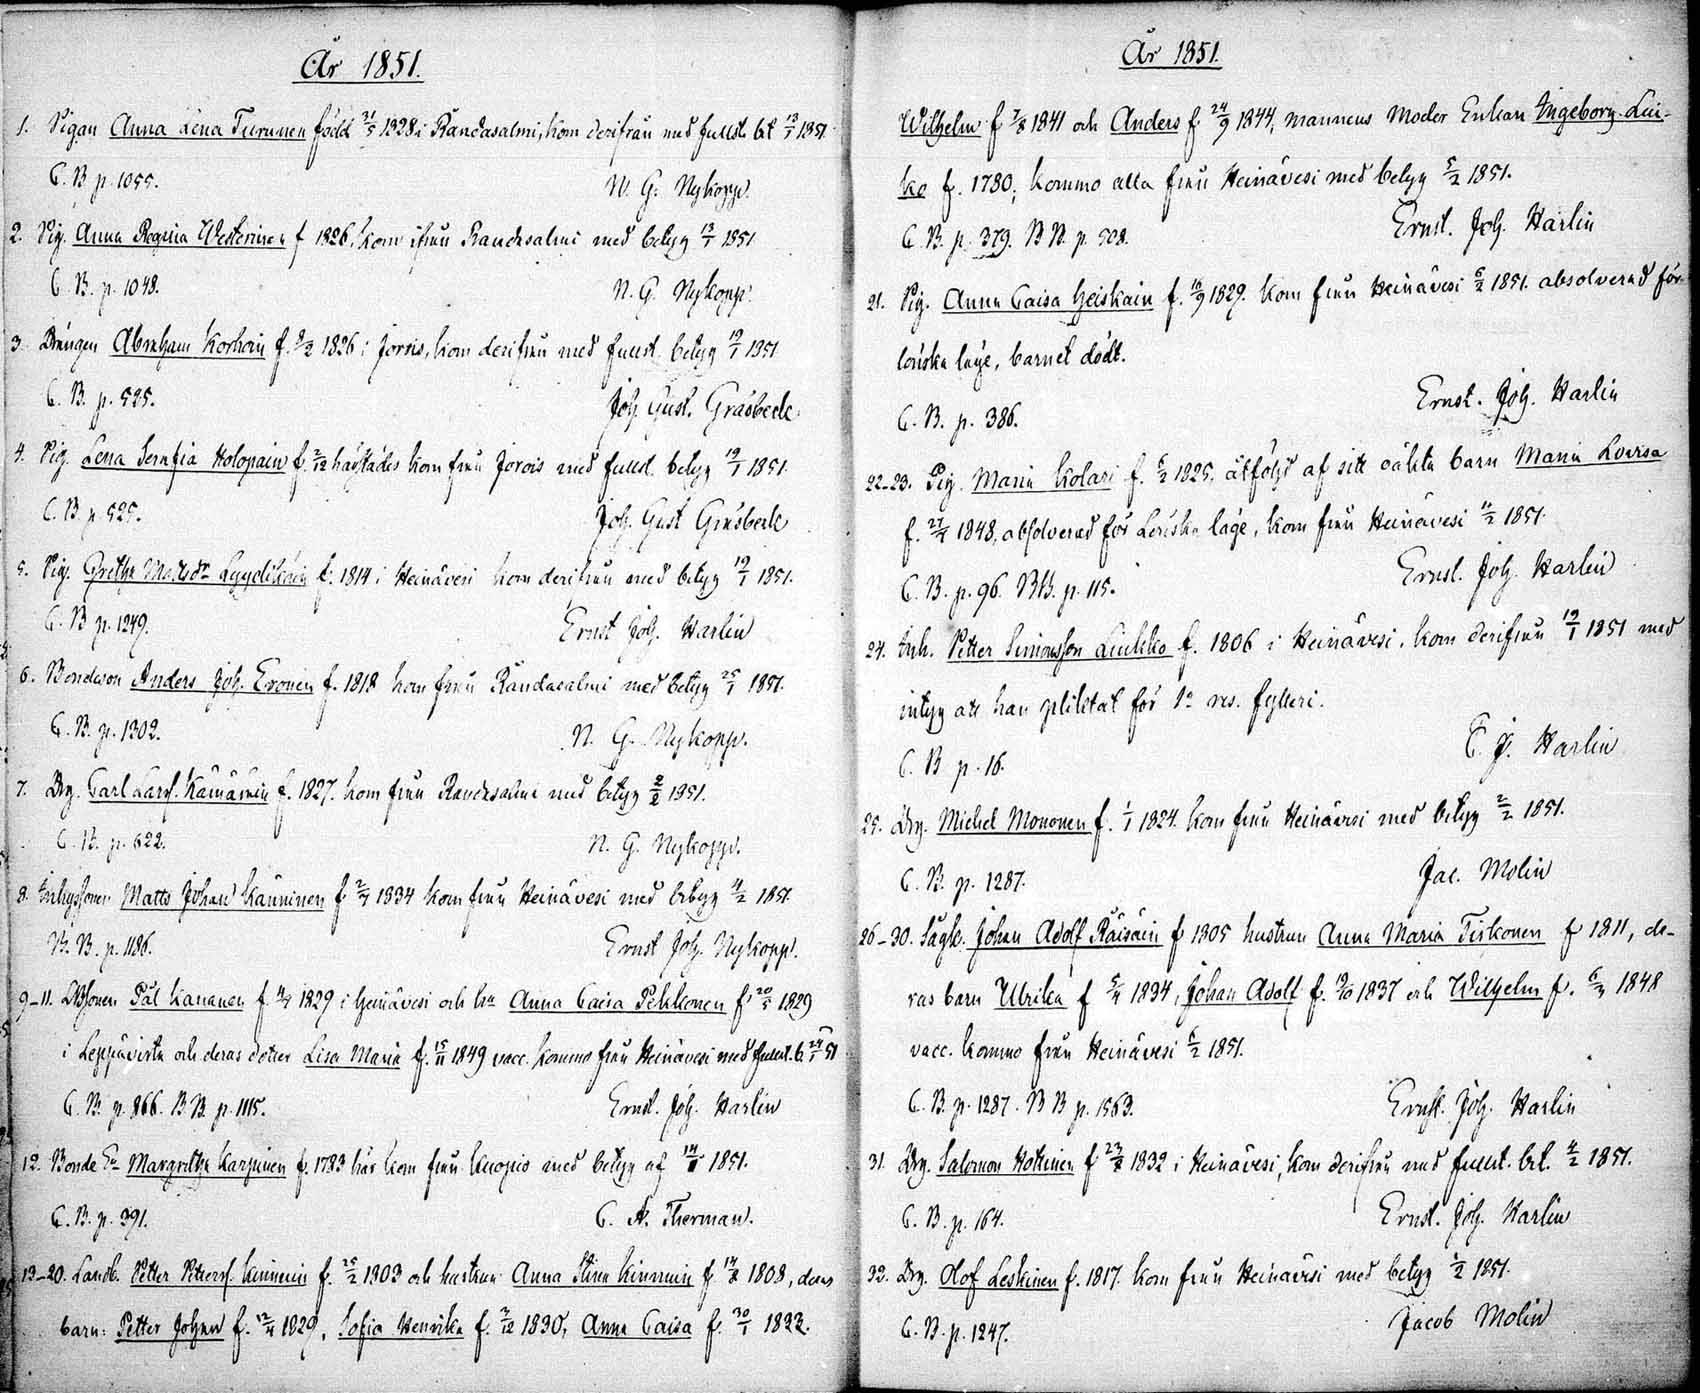 År 1851.
1. Pigan Anna Lena Turunen född 21/5 1828 i Randasalmi, kom derifrån med fullst. bet 13/1 1851
C. B p. 1055.
N. G. Nykopp.
2. Pig. Anna Regina Westerinen f 1826, kom ifrån Randasalmi med betyg 13/1 1851
C. B. p. 1048.
N. G. Nykopp.
3. Drängen Abraham Korhoin f. 1826 i Jorois, kom derifrån med fullst. betyg 19/1 1851
C. B. p. 525.
Joh. Gust. Gråsbeck
4. Pig. Lena Serafia Holopain f. 2/12 härstädes kom från Jorois med fullst. betyg 19/1 1851.
C. B. p. 525.
Joh. Gust Gråsbeck
5. Pig. Gretha Lyydikäin f. 1814 i Heinävesi kom derifrån med betyg 19/1 1851.
C. B p. 1249.
Ernst Joh. Harlin
6. Bondeson Anders Joh. Eronen f. 1818 kom från Randasalmi med betyg 25/1 1851.
C. B. p. 1302.
N. G. Nykopp.
7. Drg. Carl Larss. Kämäräin f. 1827. kom från Randasalmi med betyg 2/2 1851.
C. B. p. 622.
N. G. Nykopp.
8. Inhyssonen Matts Johan Känninen f 2/7 1834 kom från Heinävesi med betyg 4/2 1851.
B. B. p. 1186.
Ernst Joh. Nykopp.
9-11. Pål Kananen f 1829 i Heinävesi och hu Anna Caisa Pekkonen f 20/5 1829
i Leppävirta och deras dotter Lisa Maria f. 15/11 1849 vacc. kommo från Heinävesi med fullst. b. 51
C. B. p. 866. B. B. p. 1115.
Ernst. Joh. Harlin
12. Bonde Margretha Karhinen f. 1783 här kom från Kuopio med betyg af 1851.
C. B. p. 391.
C. A. Therman.
13-20. Landb. Petter Petterss. Kinnunin f. 25/2 1803 och hustrun Anna Stina Kinnunin f 1808, deras
barn: Petter Johan f. 12/4 1829, Sofia Henrika f. 7/12 1830, Anna Caisa f. 30/1 1833.
År 1851.
Wilhelm f 7/8 1841 och Anders f. 24/9 1844, mannens Moder Enkan Ingeborg Lui-
ko f. 1780, kommo alla från Heinävesi med betyg 5/2 1851.
C. B. p. 379. B B. p. 508.
Ernst. Joh. Harlin
21. Pig. Anna Caisa Heiskain f. 16/9 1829. kom från Heinävesi 6/2 1851. absolverad för
lönska läge, barnet dödt.
C. B. p. 386.
Ernst. Joh. Harlin
22-23. Pig. Maria Kolari f. 6/2 1825, åtföljd af sitt oäkta barn Maria Lovisa
f. 27/4 1848, absolverad för Lönska läge, kom från Heinävesi 11/2 1851.
C. B. p. 96. BB. p. 115.
Ernst. Joh. Harlin
24. Inh. Petter Simonsson Liukko f. 1806 i Heinävesi, kom derifrån 19/1 1851 med
intyg att han pliktat för 1a res. fylleri.
C. B p. 16.
E. J. Harlin
25. Drg. Michel Mononen f. 1/1 1824. kom från Heinävesi med betyg 2/2 1851.
C. B. p. 1287.
Jac. Molin
26-30. Johan Adolf Räisäin f 1805 hustrun Anna Maria Tirkonen f 1811, de-
ras barn Ulrika f 5/4 1834, Johan Adolf f. 19/10 1837 och Wilhelm f. 6/4 1848
vacc. kommo från Heinävesi 6/2 1851.
C. B. p. 1287. B B p. 1563.
Ernst. Joh. Harlin
31. Drg. Salomon Hottinen f 1832 i Heinävesi, kom derifrån med fullst. bet. 4/2 1851.
C. B. p. 164.
Ernst. Joh. Harlin
32. Drg. Olof Leskinen f. 1817. kom från Heinävesi med betyg 1/2 1851.
C. B. p. 1247.
Jacob Molin